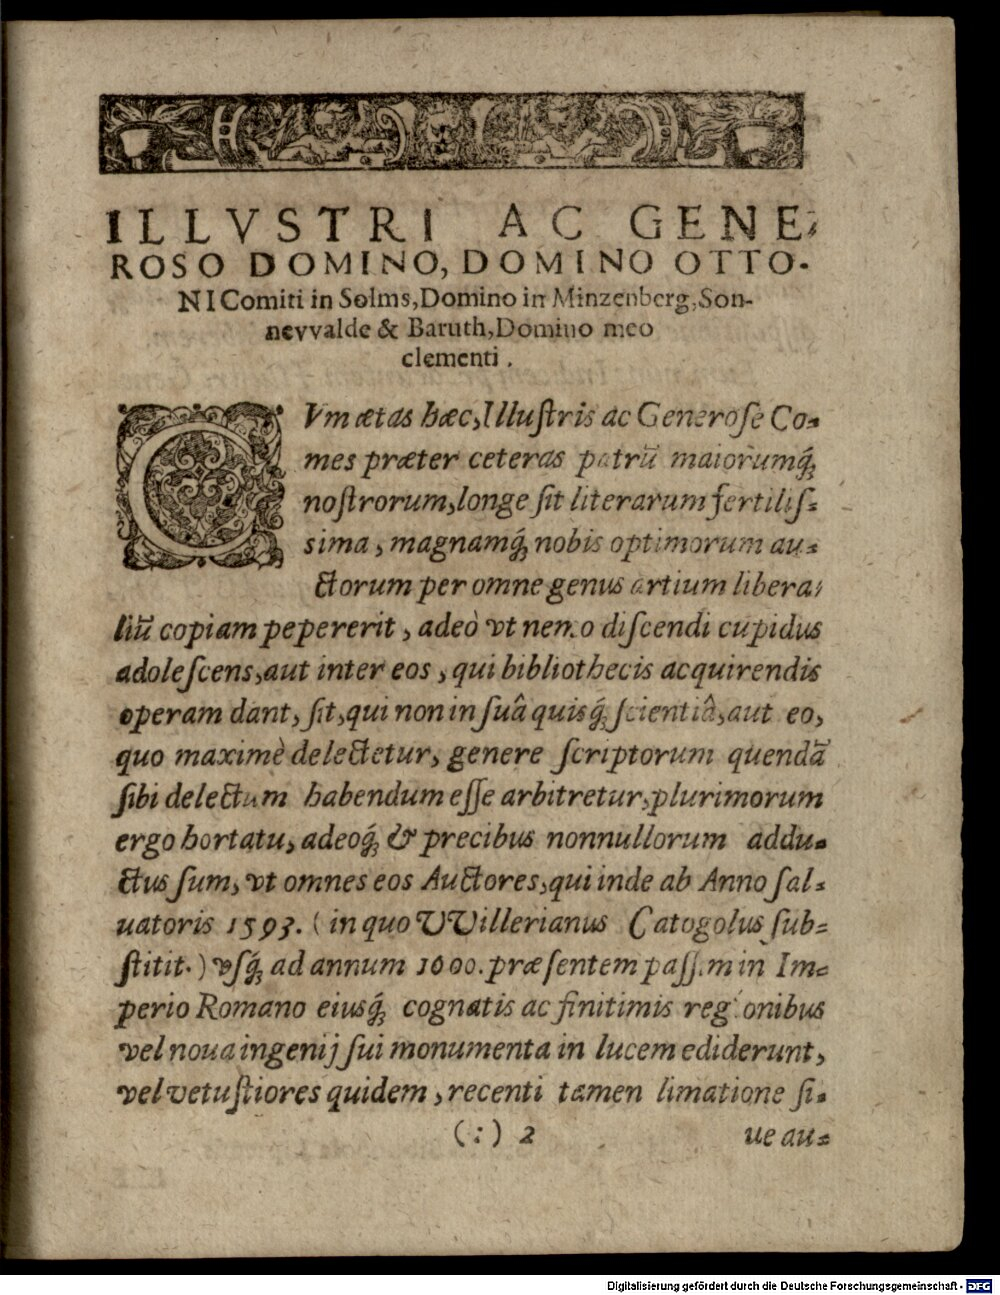 ILLVSTRI AC GENE-
ROSO DOMINO, DOMINO OTTO-
NI Comiti in Solms, Domino in Minzenberg, Son-
nevvalde & Baruth, Domino meo
clementi.
CVm ætas hæc, Illuſtris ac Generoſe Co-
mes præter ceteras patrũ maiorumq́;
noſtrorum, longe ſit literarum fertiliſ-
sima, magnamq́; nobis optimorum au-
ctorum per omne genus artium libera-
liũ copiam pepererit, adeò vt nemo diſcendi cupidus
adoleſcens, aut inter eos, qui bibliothecis acquirendis
operam dant, ſit, qui non in ſuâ quisq́; ſcientiâ, aut eo,
quo maximè delectetur, genere ſcriptorum quendã
ſibi delectum habendum eſſe arbitretur, plurimorum
ergo hortatu, adeoq́; & precibus nonnullorum addu-
ctus ſum, vt omnes eos Auctores, qui inde ab Anno ſal-
uatoris 1593. (in quo VVillerianus Catogolus ſub-
ſtitit.) vſq́; ad annum 1600. præſentem paſſim in Im-
perio Romano eiusq́; cognatis ac finitimis regionibus
vel noua ingenij ſui monumenta in lucem ediderunt,
vel vetuſtiores quidem, recenti tamen limatione ſi-
(:) 2 ue au-
Digitalisierung gefördert durch die Deutsche Forschungsgemeinschaft - DFG